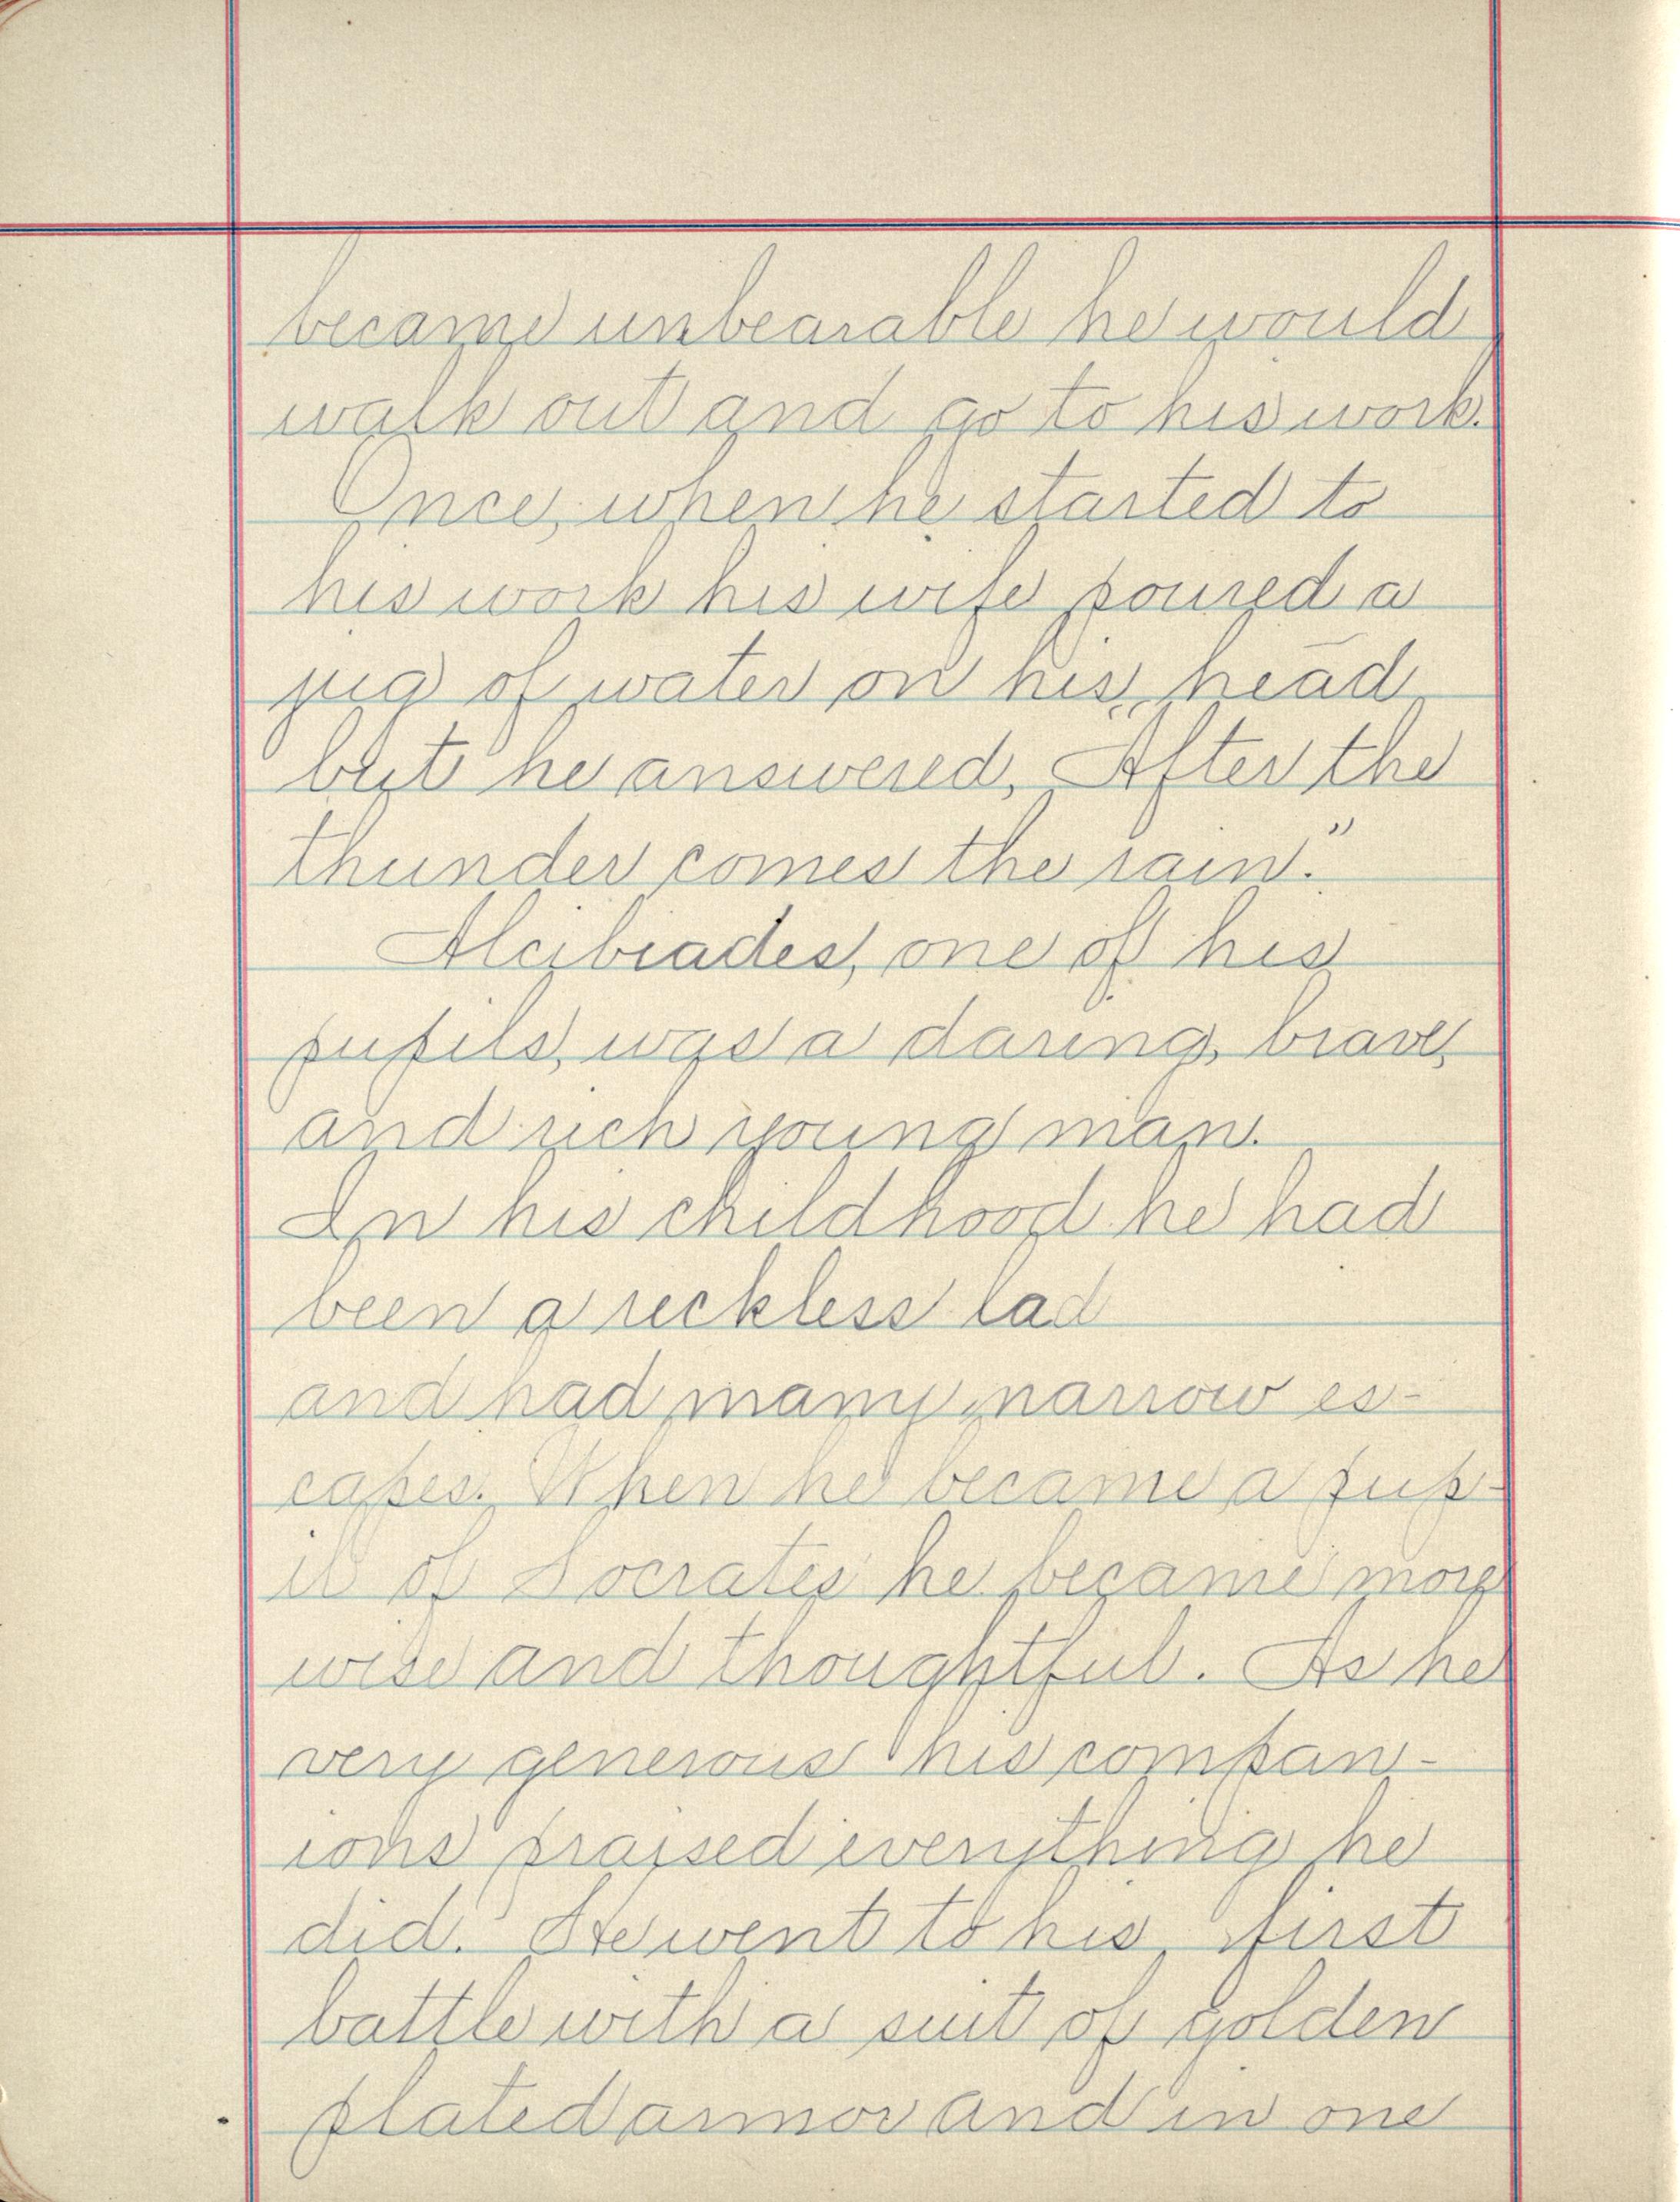 became unbearable he would
walk out and go to his work.
Once, when he started to
his work his wife poured a
jug of water on his head
but he answered, "After the
thunder comes the rain."
Alcibiades, one of his
pupils, was a daring, brave,
and rich young man.
In his childhood he had
been a reckless lad
and had many narrow es-
capes. When he became a pup-
il of Socrates he became more
wise and thoughtful. As he
very generous his compan-
ions praised everything he
did. He went to his first
battle with a suit of golden
plated armor and in one